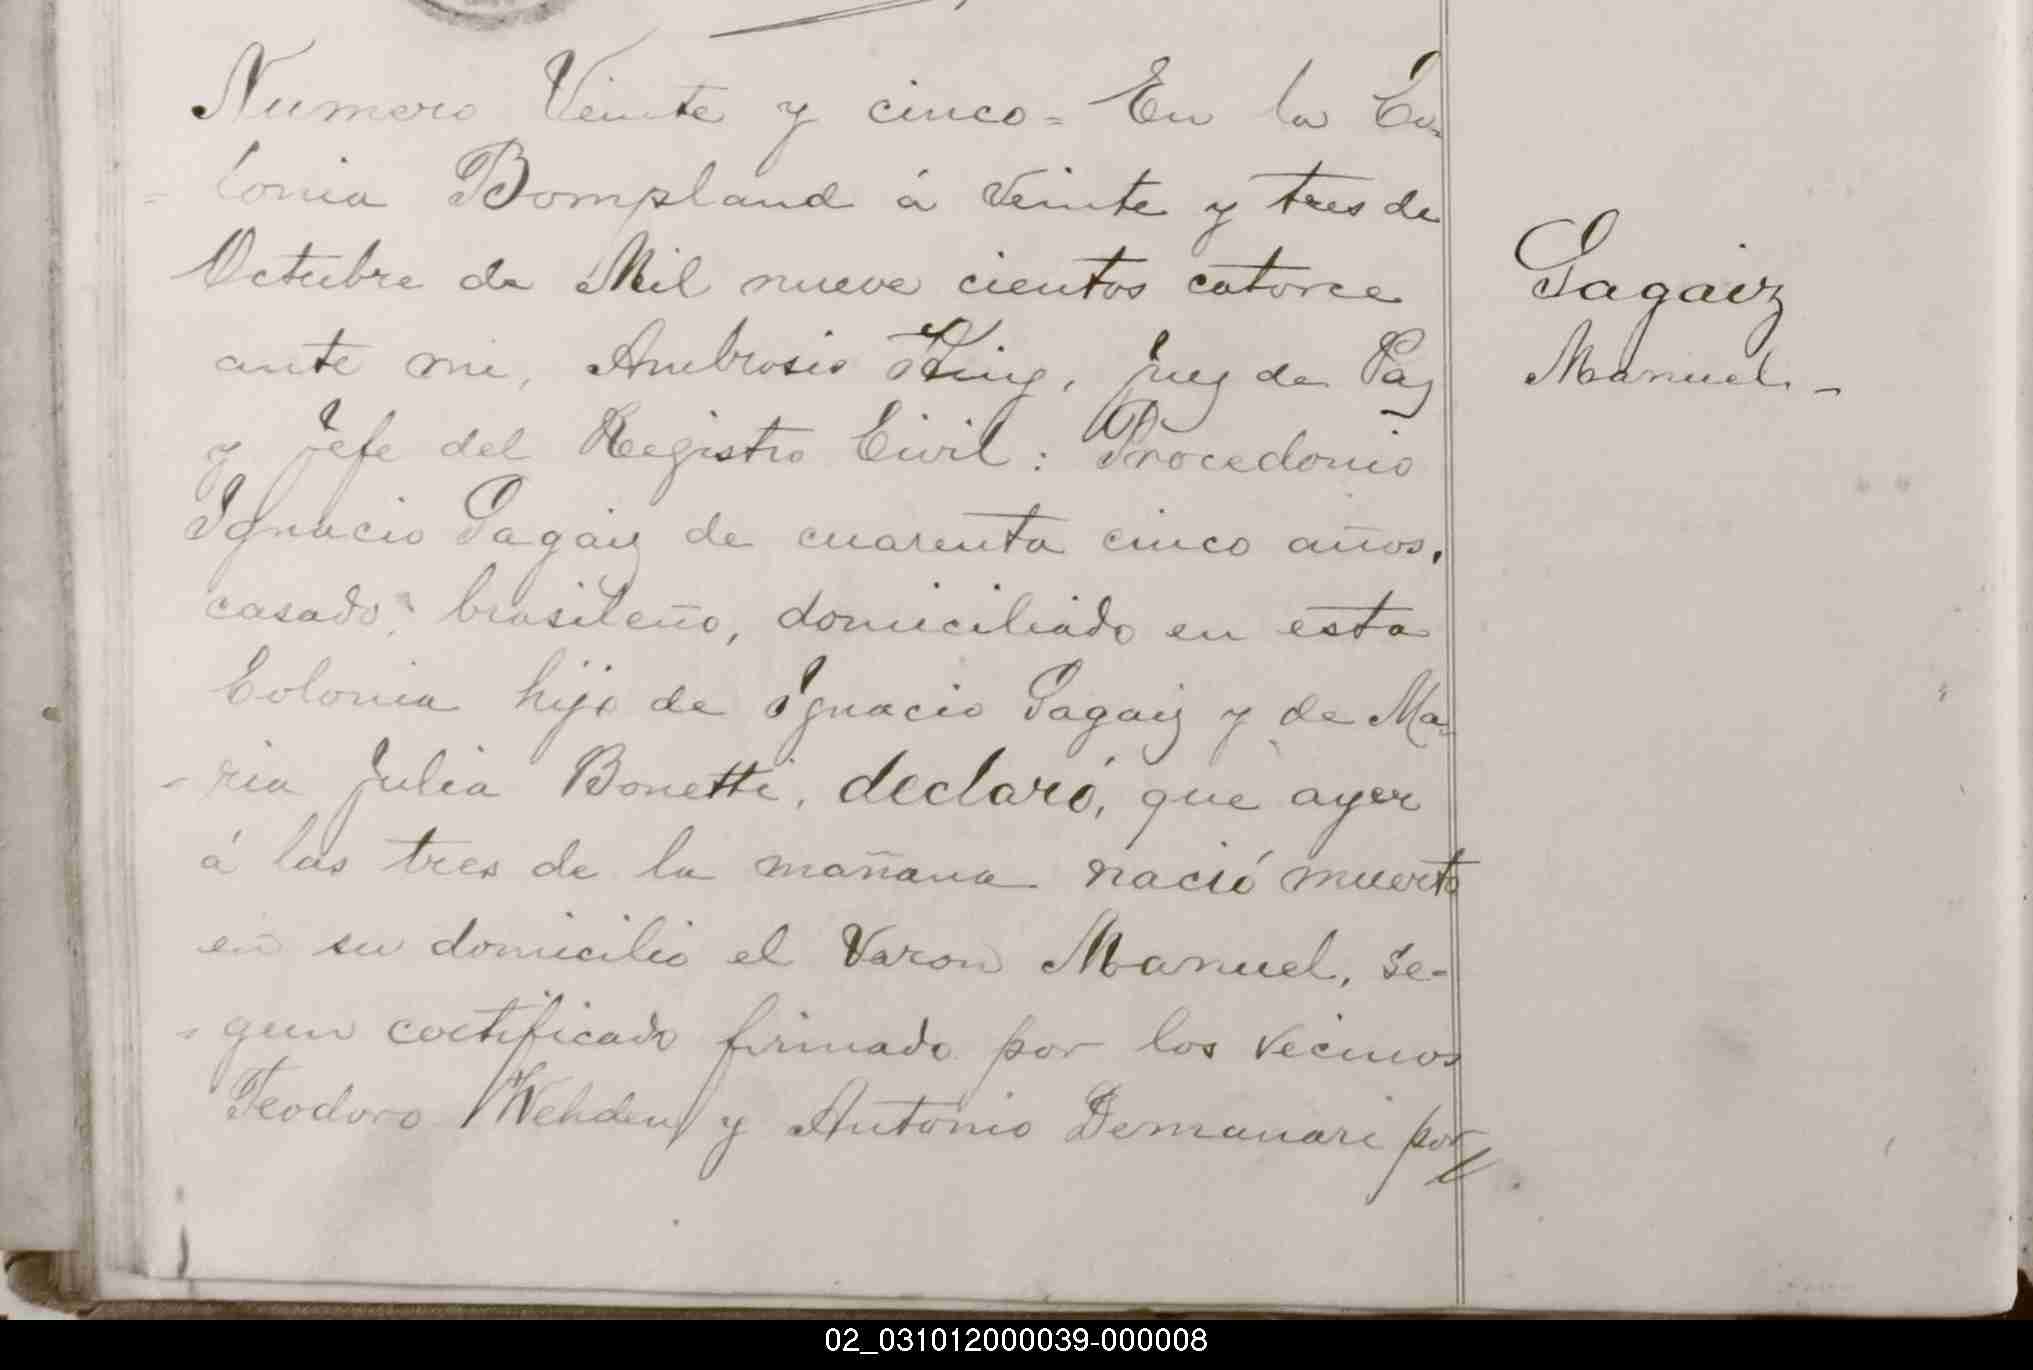 Numero Veinte y cinco = En la Co-
= lonia Bompland á veinte y tres de
Octubre de Mil nueve cientos catorce
ante mi, Ambrosio King, Juez de Paz
y Jefe del Registro Civil: Procedonio
Ignacio Pagaiz de cuarenta cinco años,
casado, brasileño, domiciliado en esta
Colonia hijo de Ignacio Pagaiz y de Ma-
- ria Julia Bonetti, declaró, que ayer
á las tres de la mañana nació muerto
en su domicilio el Varon Manuel, se-
- gun certificado firmado por los vecinos
Teodoro Wehden y Antonio Demanari por
Pagaiz
Manuel -
02_031012000039-000008